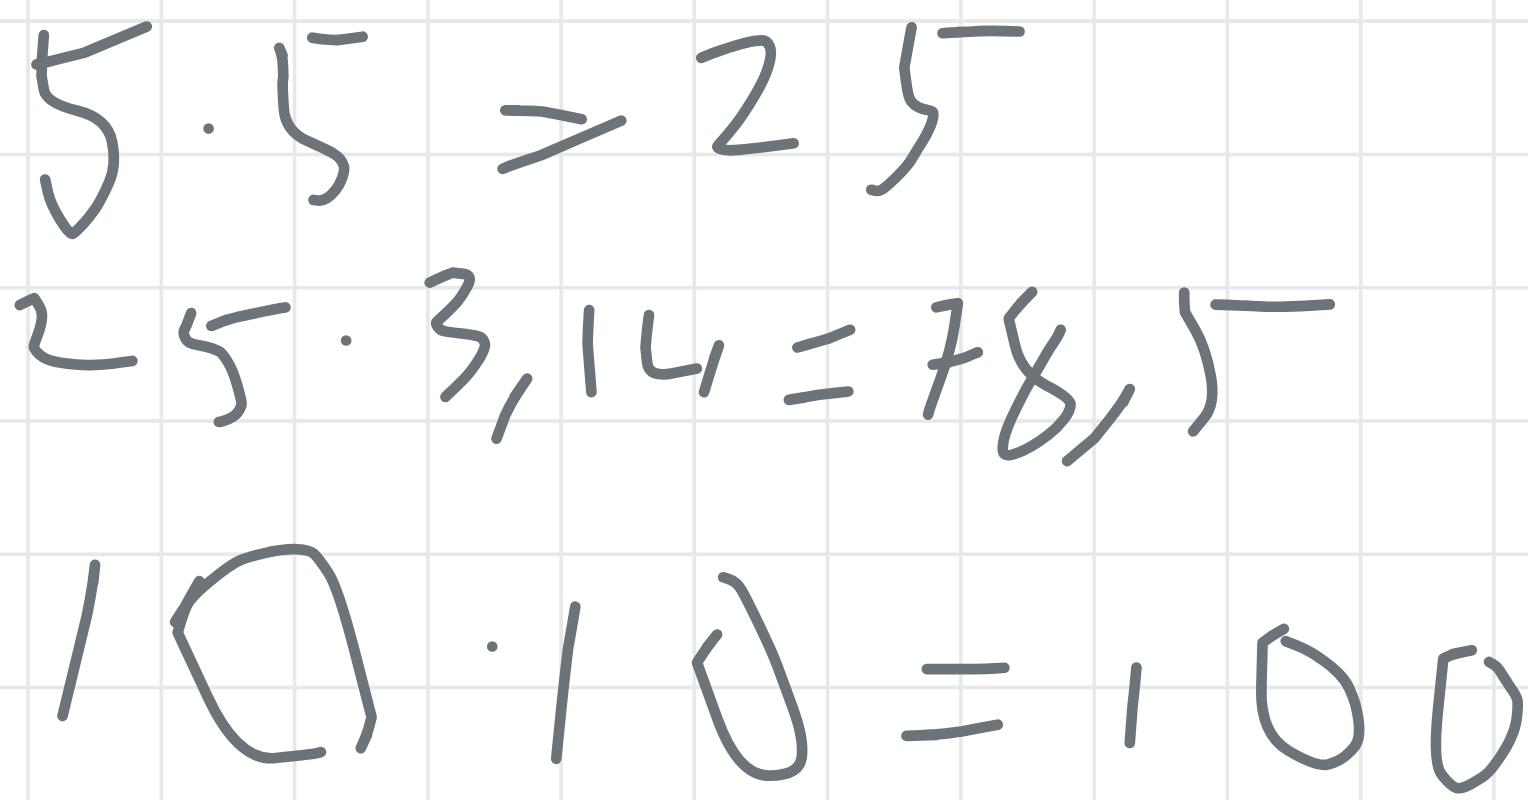 5 · 5 = 25
25 · 3,14 = 78,5
10 · 10 = 100